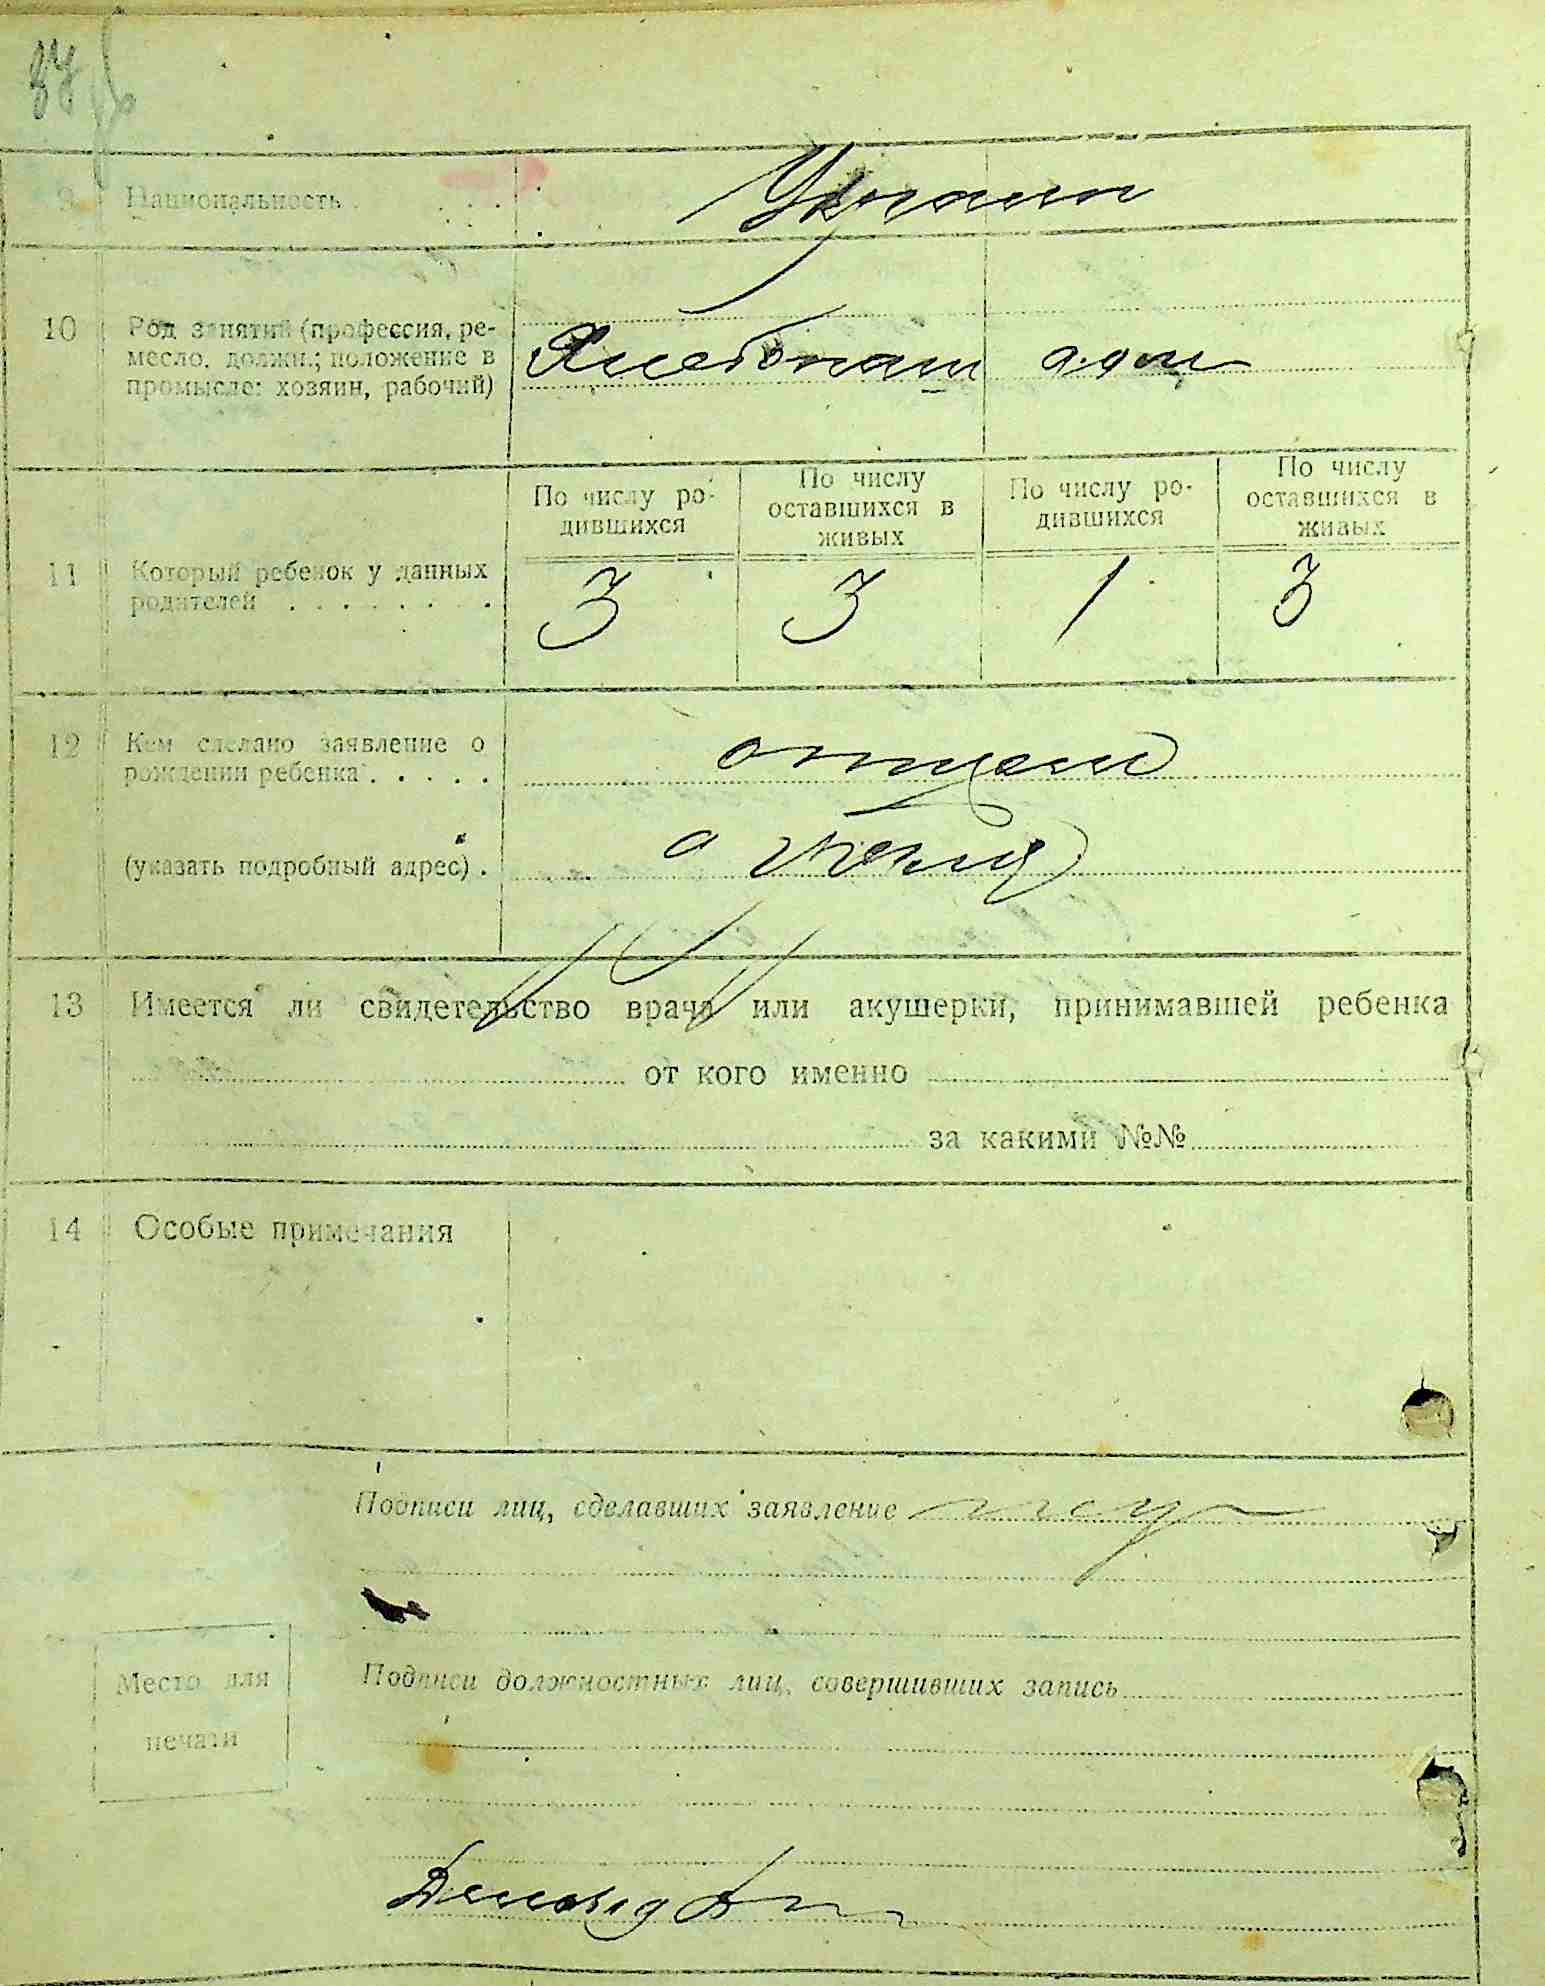 87
9 Национальность . . . .
10 Род занятий (профессия, ре-
месло, должн.; положение в
промысле: хозяин, рабочий)
Хлебопаш
11 Который ребенок у данных
родителей . . . . . . . .
По числу ро-
дившихся
По числу
оставшихся в
живых
По числу ро-
дившихся
По числу
оставшихся в
живых
3 3 1 3
12 Кем сделано заявление о
рождении ребенка . . . . .
отцем
(указать подробный адрес) .
13 Имеется ли свидетельство врача или акушерки, принимавшей ребенка
от кого именно
за какими №№
14 Особые примечания
Подписи лиц, сделавших заявление
Место для
печати
Подписи должностных лиц, совершивших запись